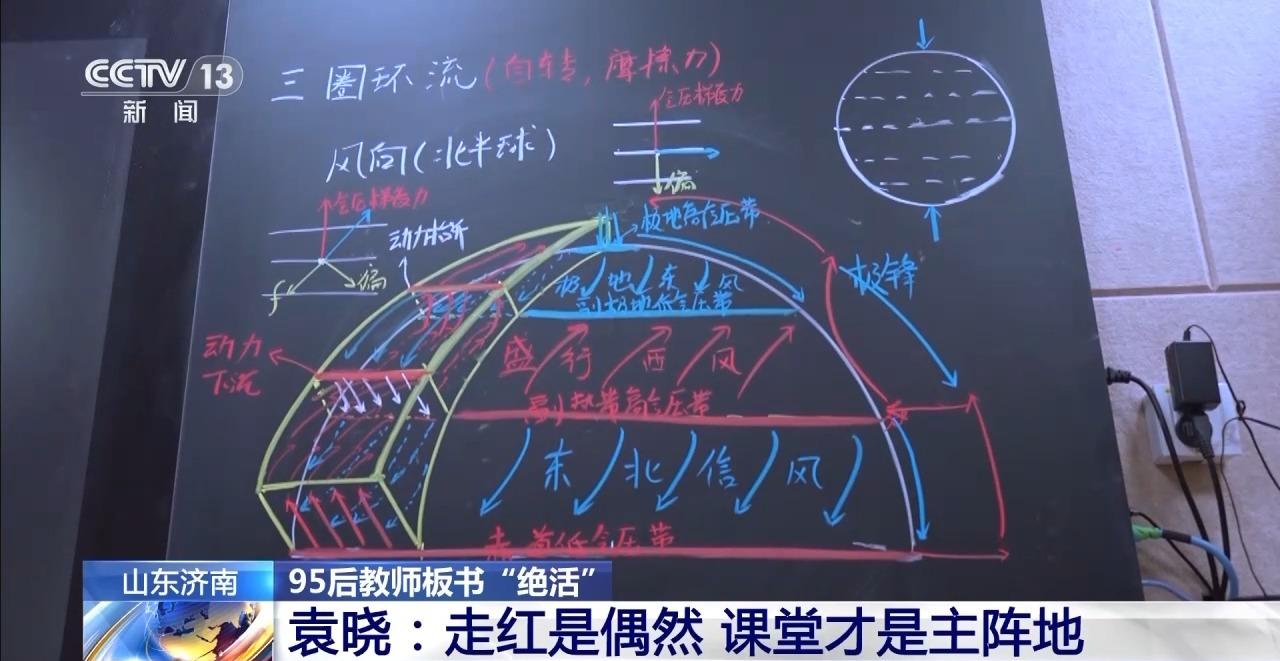 CCTV 13
新闻
三圈环流(自转, 摩擦力)
风向(北半球)
气压梯度力
偏
气压梯度力
f
偏
动力抬升
极地高气压带
极地东风
副极地低气压带
极锋
动力
下沉
盛行西风
副热带高气压带
东北信风
赤道低气压带
山东济南
95后教师板书“绝活”
袁晓：走红是偶然 课堂才是主阵地